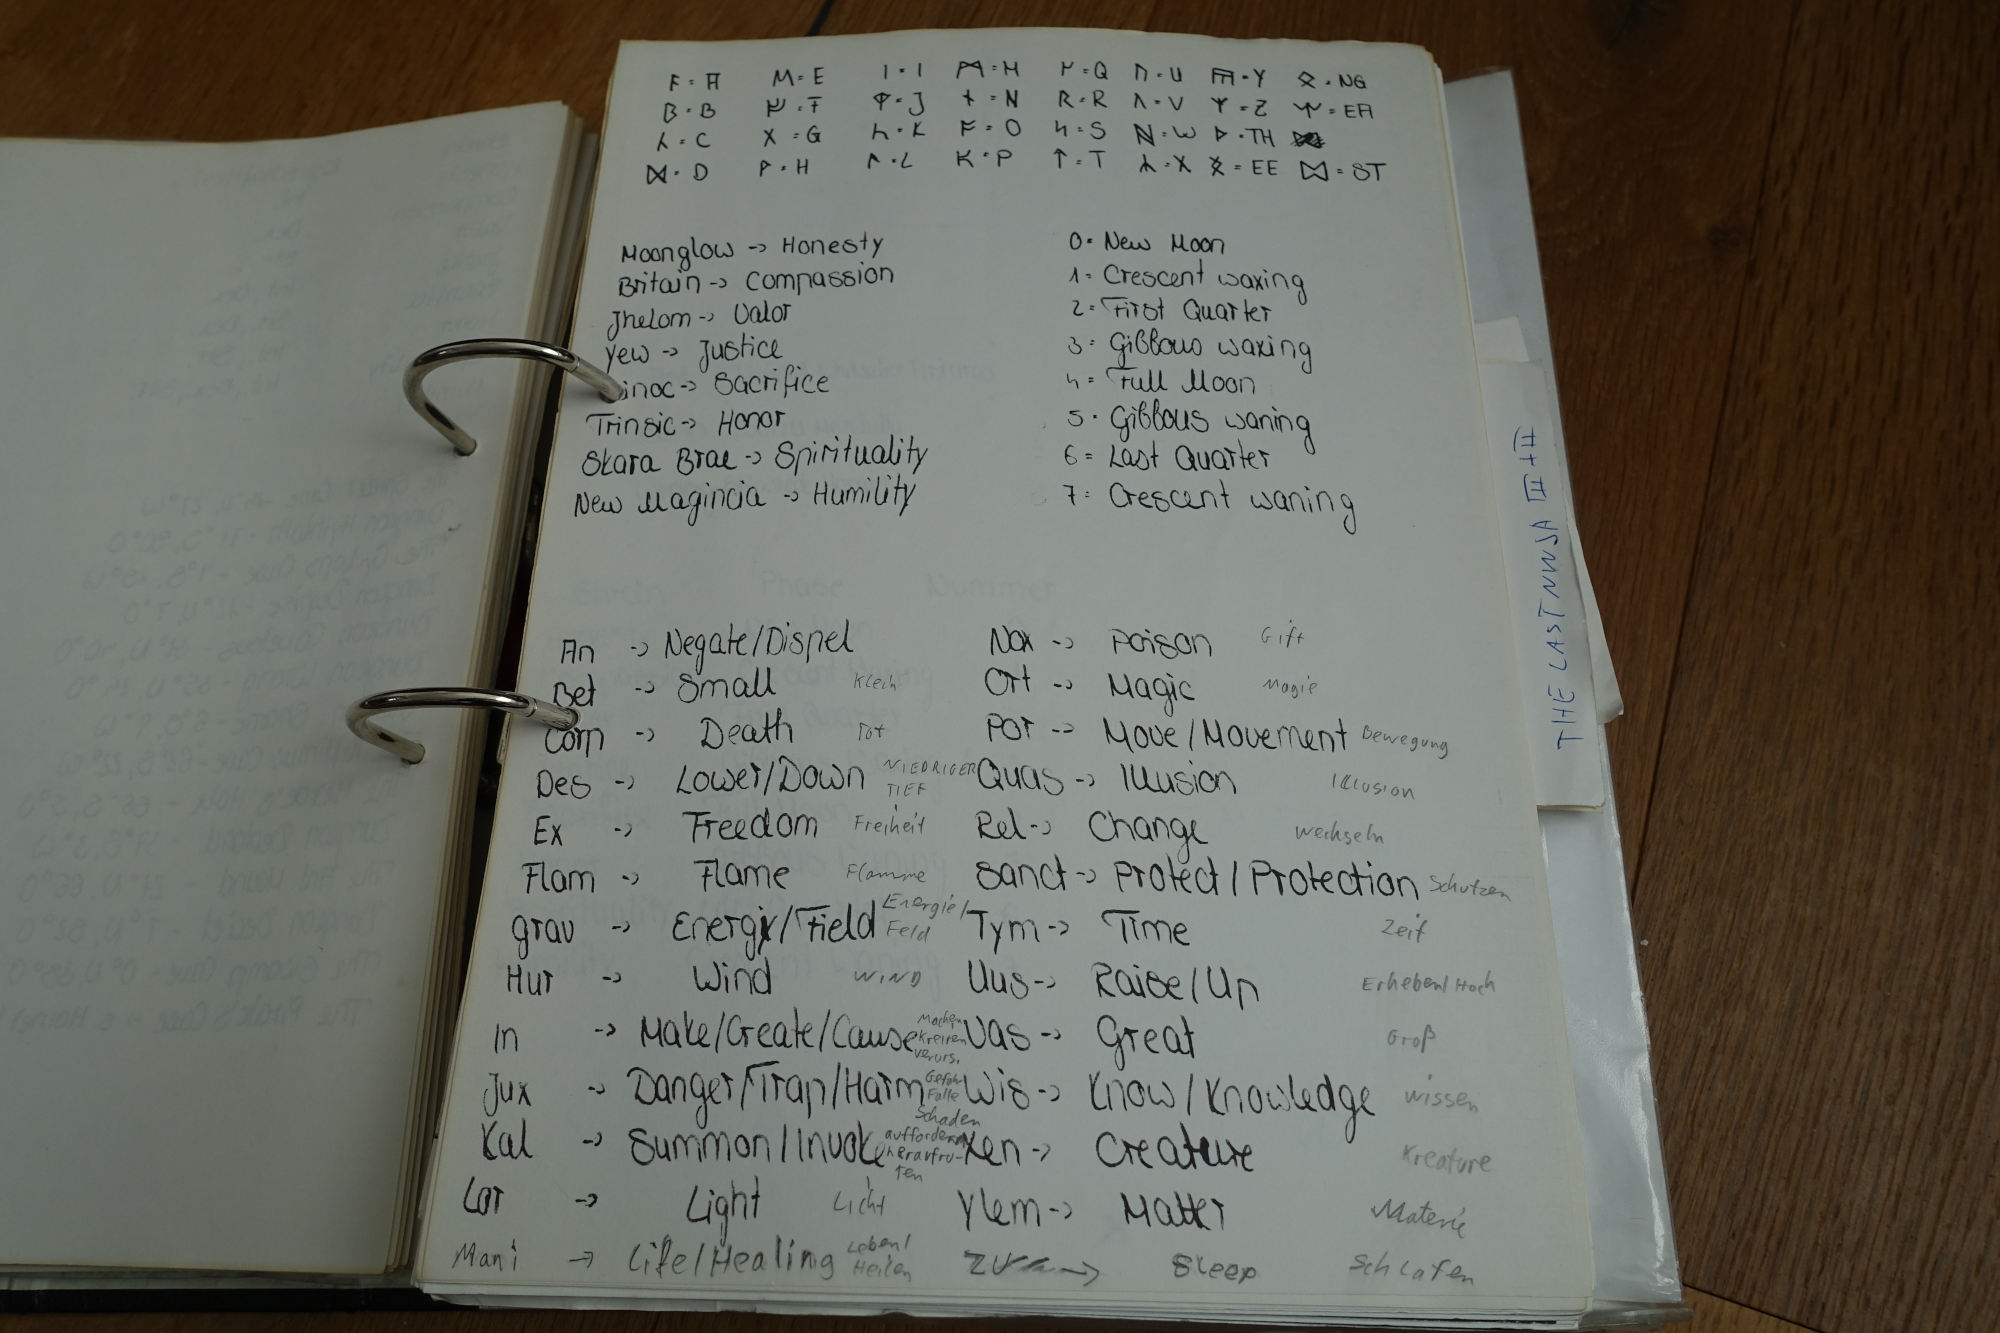 ᚠ = A M = E I = I ᛗ = M ᛩ = Q ᚢ = U ᛠ = Y ᛟ = NG
B = B F = F J = J ᚾ = N R = R Λ = V ᛉ = Z = EA
ᚳ = C X = G ᚴ = K ᚩ = O ᛋ = S W = W ᚦ = TH
ᛞ = D ᚹ = H ᛚ = L K = P ↑ = T ᛣ = X = EE = ST
Moonglow -> Honesty
Britain -> Compassion
Jhelom -> Valor
Yew -> Justice
inoc -> Sacrifice
Trinsic -> Honor
Skara Brae -> Spirituality
New Magincia -> Humility
0 = New Moon
1 = Crescent waxing
2 = First Quarter
3 = Gibbous waxing
4 = Full Moon
5 = Gibbous waning
6 = Last Quarter
7 = Crescent waning
An -> Negate/Dispel
Bet -> Small Klein
Corp -> Death Tot
Des -> Lower/Down NIEDRIGER
TIEF
Ex -> Freedom Freiheit
Flam -> Flame Flamme
Grav -> Energy/Field Energie/
Feld
Hur -> Wind WIND
In -> Make/Create/Cause Machen
Kreiren
verurs.
Jux -> Danger/Trap/Harm Gefahr
Falle
Schaden
Kal -> Summon/Invoke auffordern
heraufru-
fen
Lor -> Light Licht
Mani -> Life/Healing Leben/
Heilen
Nox -> Poison Gift
Ort -> Magic Magie
Por -> Move/Movement Bewegung
Quas -> Illusion Illusion
Rel -> Change wechseln
Sanct -> Protect/Protection Schutzen
Tym -> Time Zeit
Uus -> Raise/Up Erheben/Hoch
Vas -> Great Groß
Wis -> Know/Knowledge wissen
Xen -> Creature Kreature
Ylem -> Matter Materie
ZU -> Sleep Schlafen
THE LAST NINJA II + III